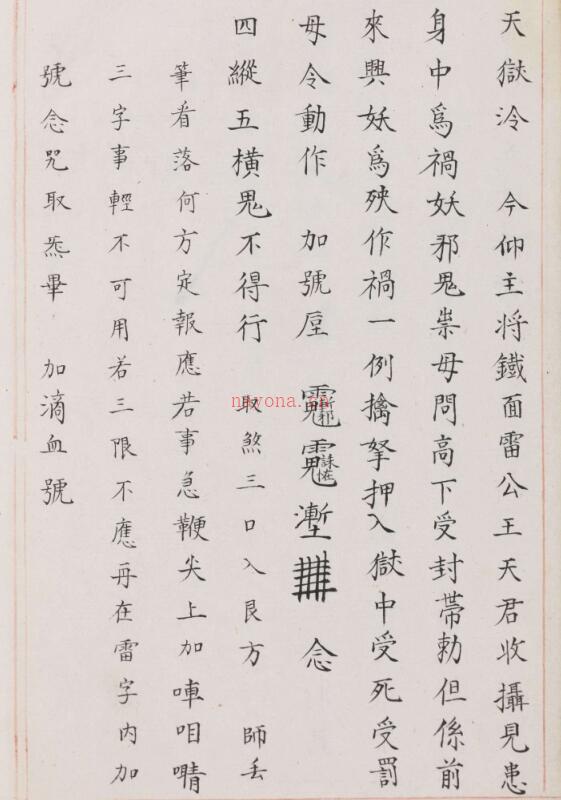 天獄泠　今仰主将鐵面雷公王天君收攝見患
身中爲禍妖邪鬼祟毋問高下受封帶勅但係前
來興妖爲殃作禍一例擒拏押入獄中受死受罰
毋令動作　加號厔　塹　念
四縱五橫鬼不得行　取煞三口入艮方　師丢
筆看落何方定報應若事急鞭尖上加唓咱囀
三字事輕不可用若三限不應再在雷字内加
號念咒取炁畢　加滴血號
nayona.cn